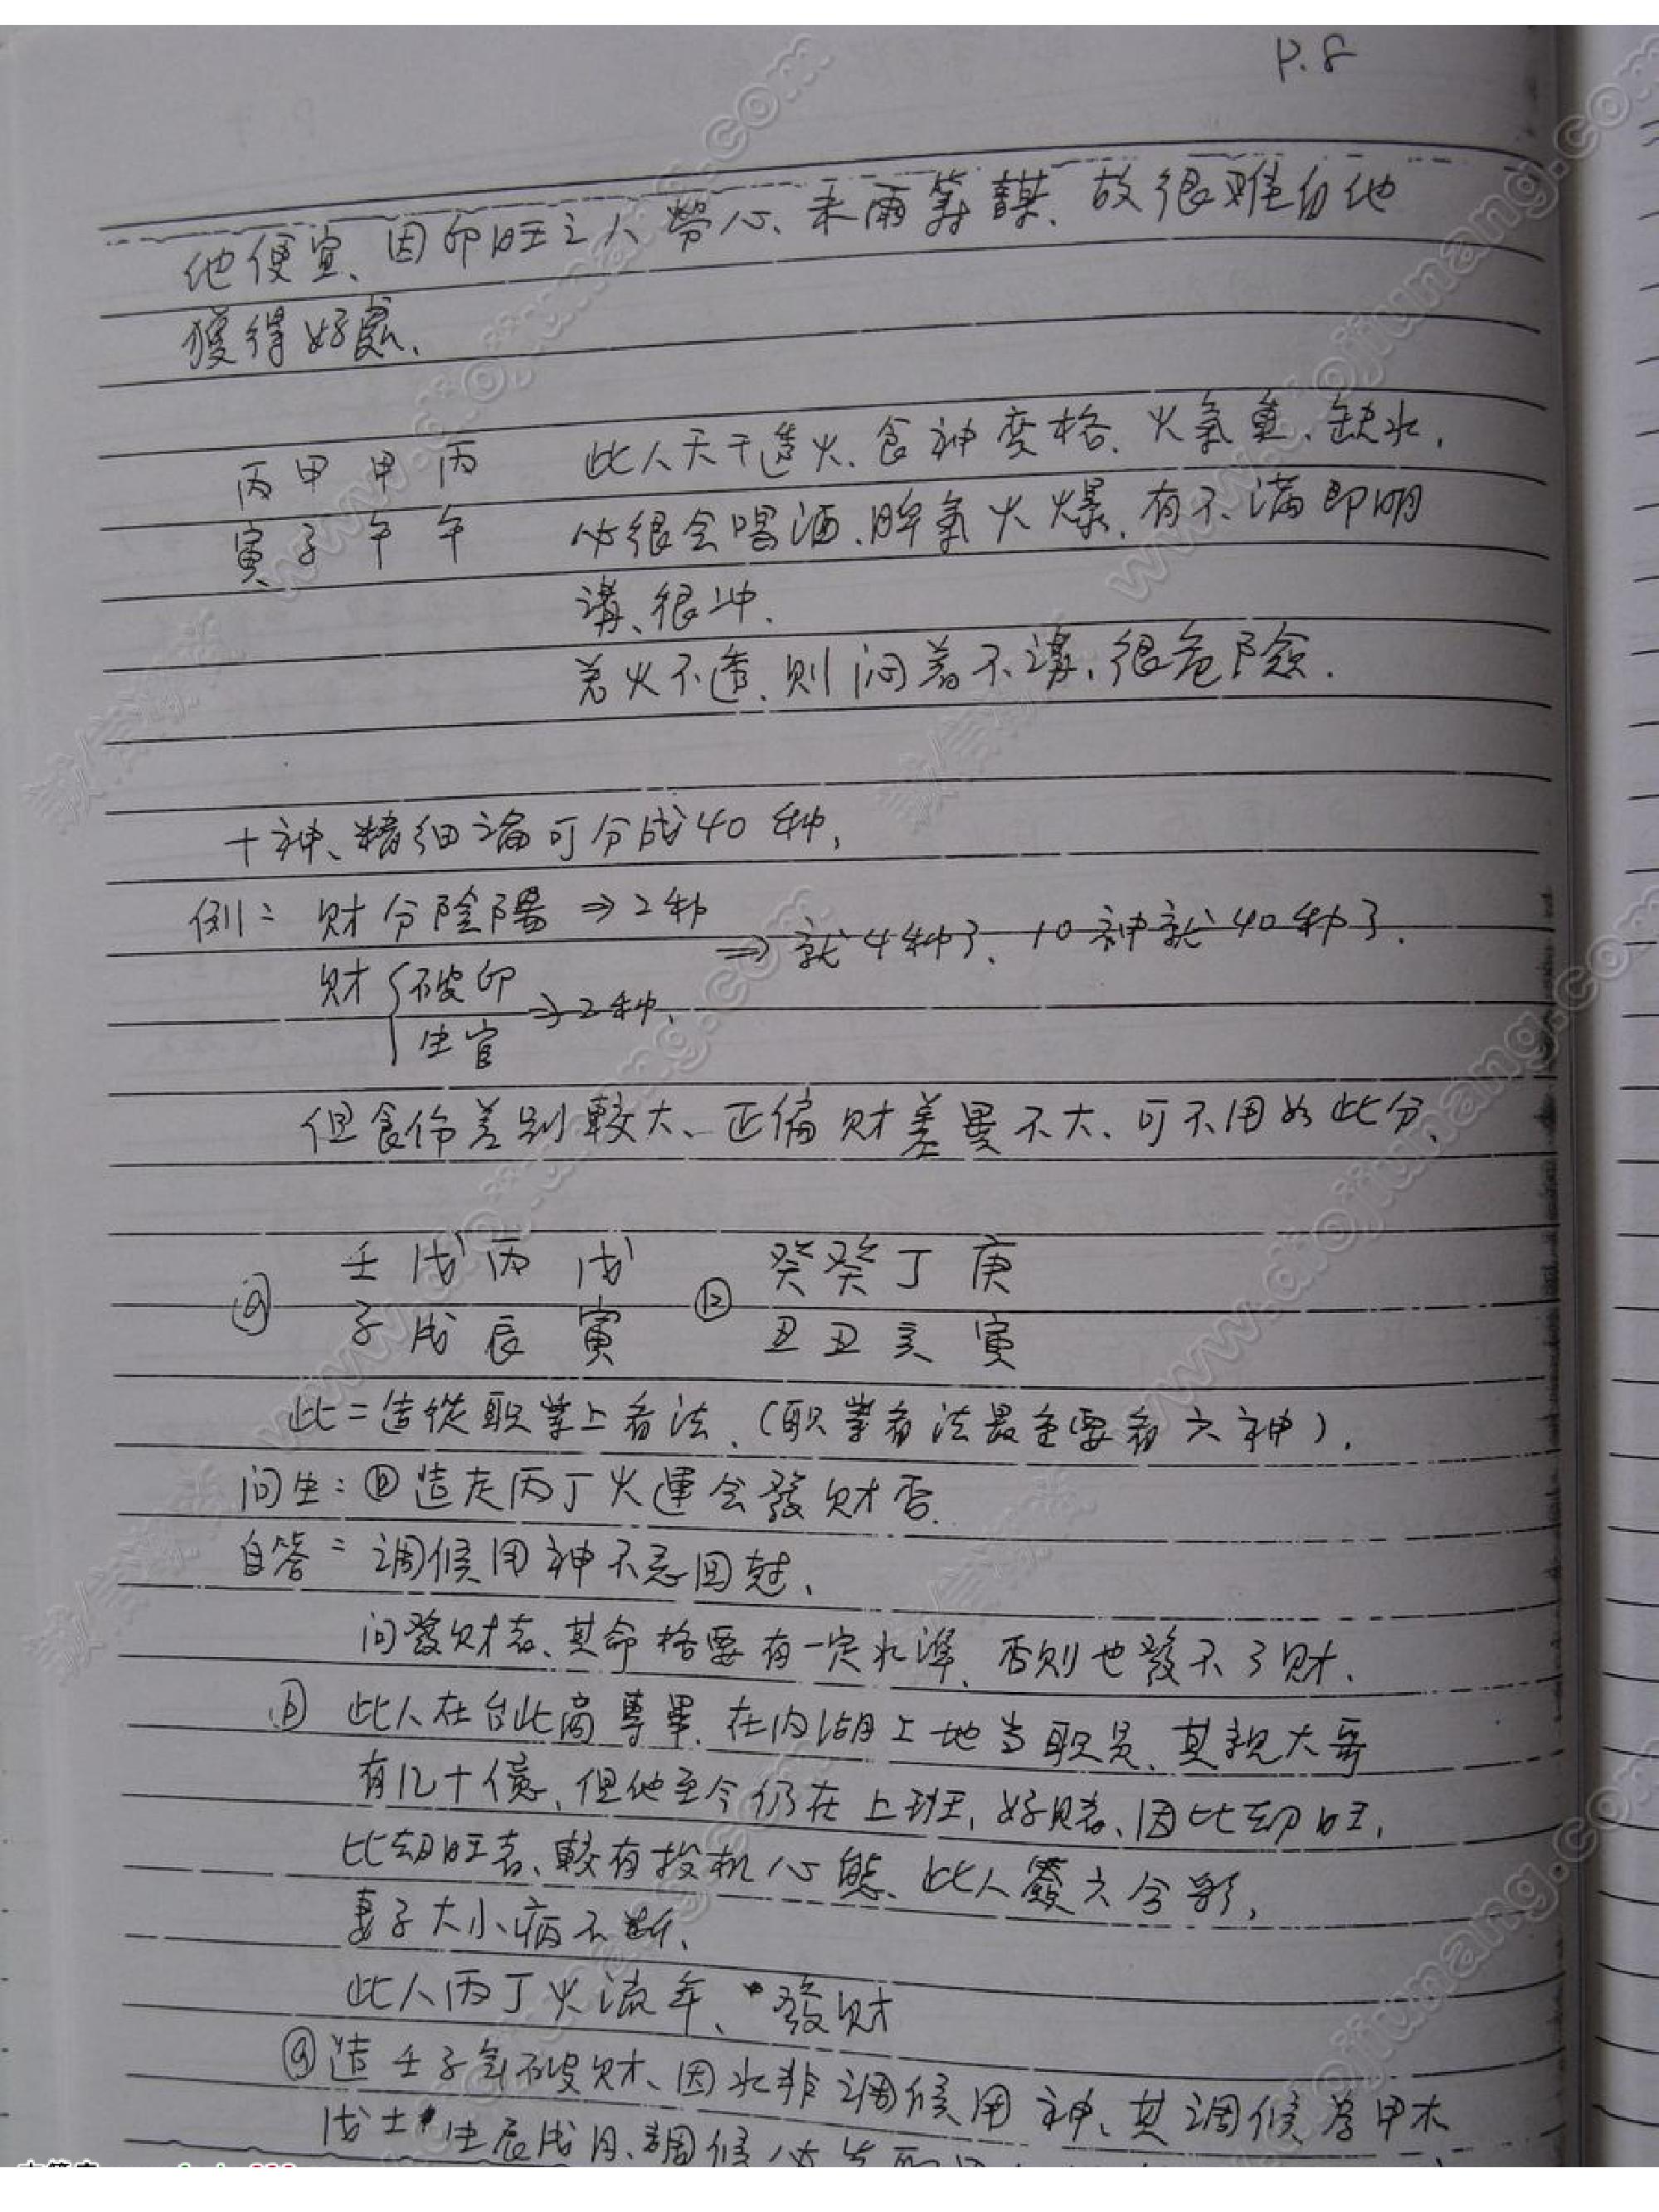 P.8
他便宜、因印旺之人勞心、未雨籌謀、故很难自他
獲得好處、
丙甲甲丙 此人天干透火、食神变格、火氣重、缺水、
寅子午午 必很会喝酒、脾氣火爆、有不满即明
講、很冲.
若火不透、則闷着不講、很危险.
十神、精細論可分成40种、
例= 财分陰陽 ⇒2种
⇒就4种了、10神就40种了.
财{破印
生官 ⇒2种、
但食伤差别較大、正偏财差異不大、可不用如此分、
ⓐ 壬戊丙戊 ⓑ 癸癸丁庚
子戌辰寅 丑丑亥寅
此二造從职業上看法、(职業看法最主要看六神).
问生:ⓑ造走丙丁火運会發财否.
自答= 调候用神不忌回尅、
问發财者、其命格要有一定水準、否則也發不了财、
ⓑ 此人在台北商專畢、在内湖土地当职员、其親大哥
有几十億、但他至今仍在上班、好賭、因比劫旺、
比劫旺者、較有投机心態、此人簽六合彩、
妻子大小病不断、
此人丙丁火流年、發财
ⓐ造壬子年破财、因水非调候用神、其调候為甲木
戊土生辰戌月、調候必先
www.dojiumang.com